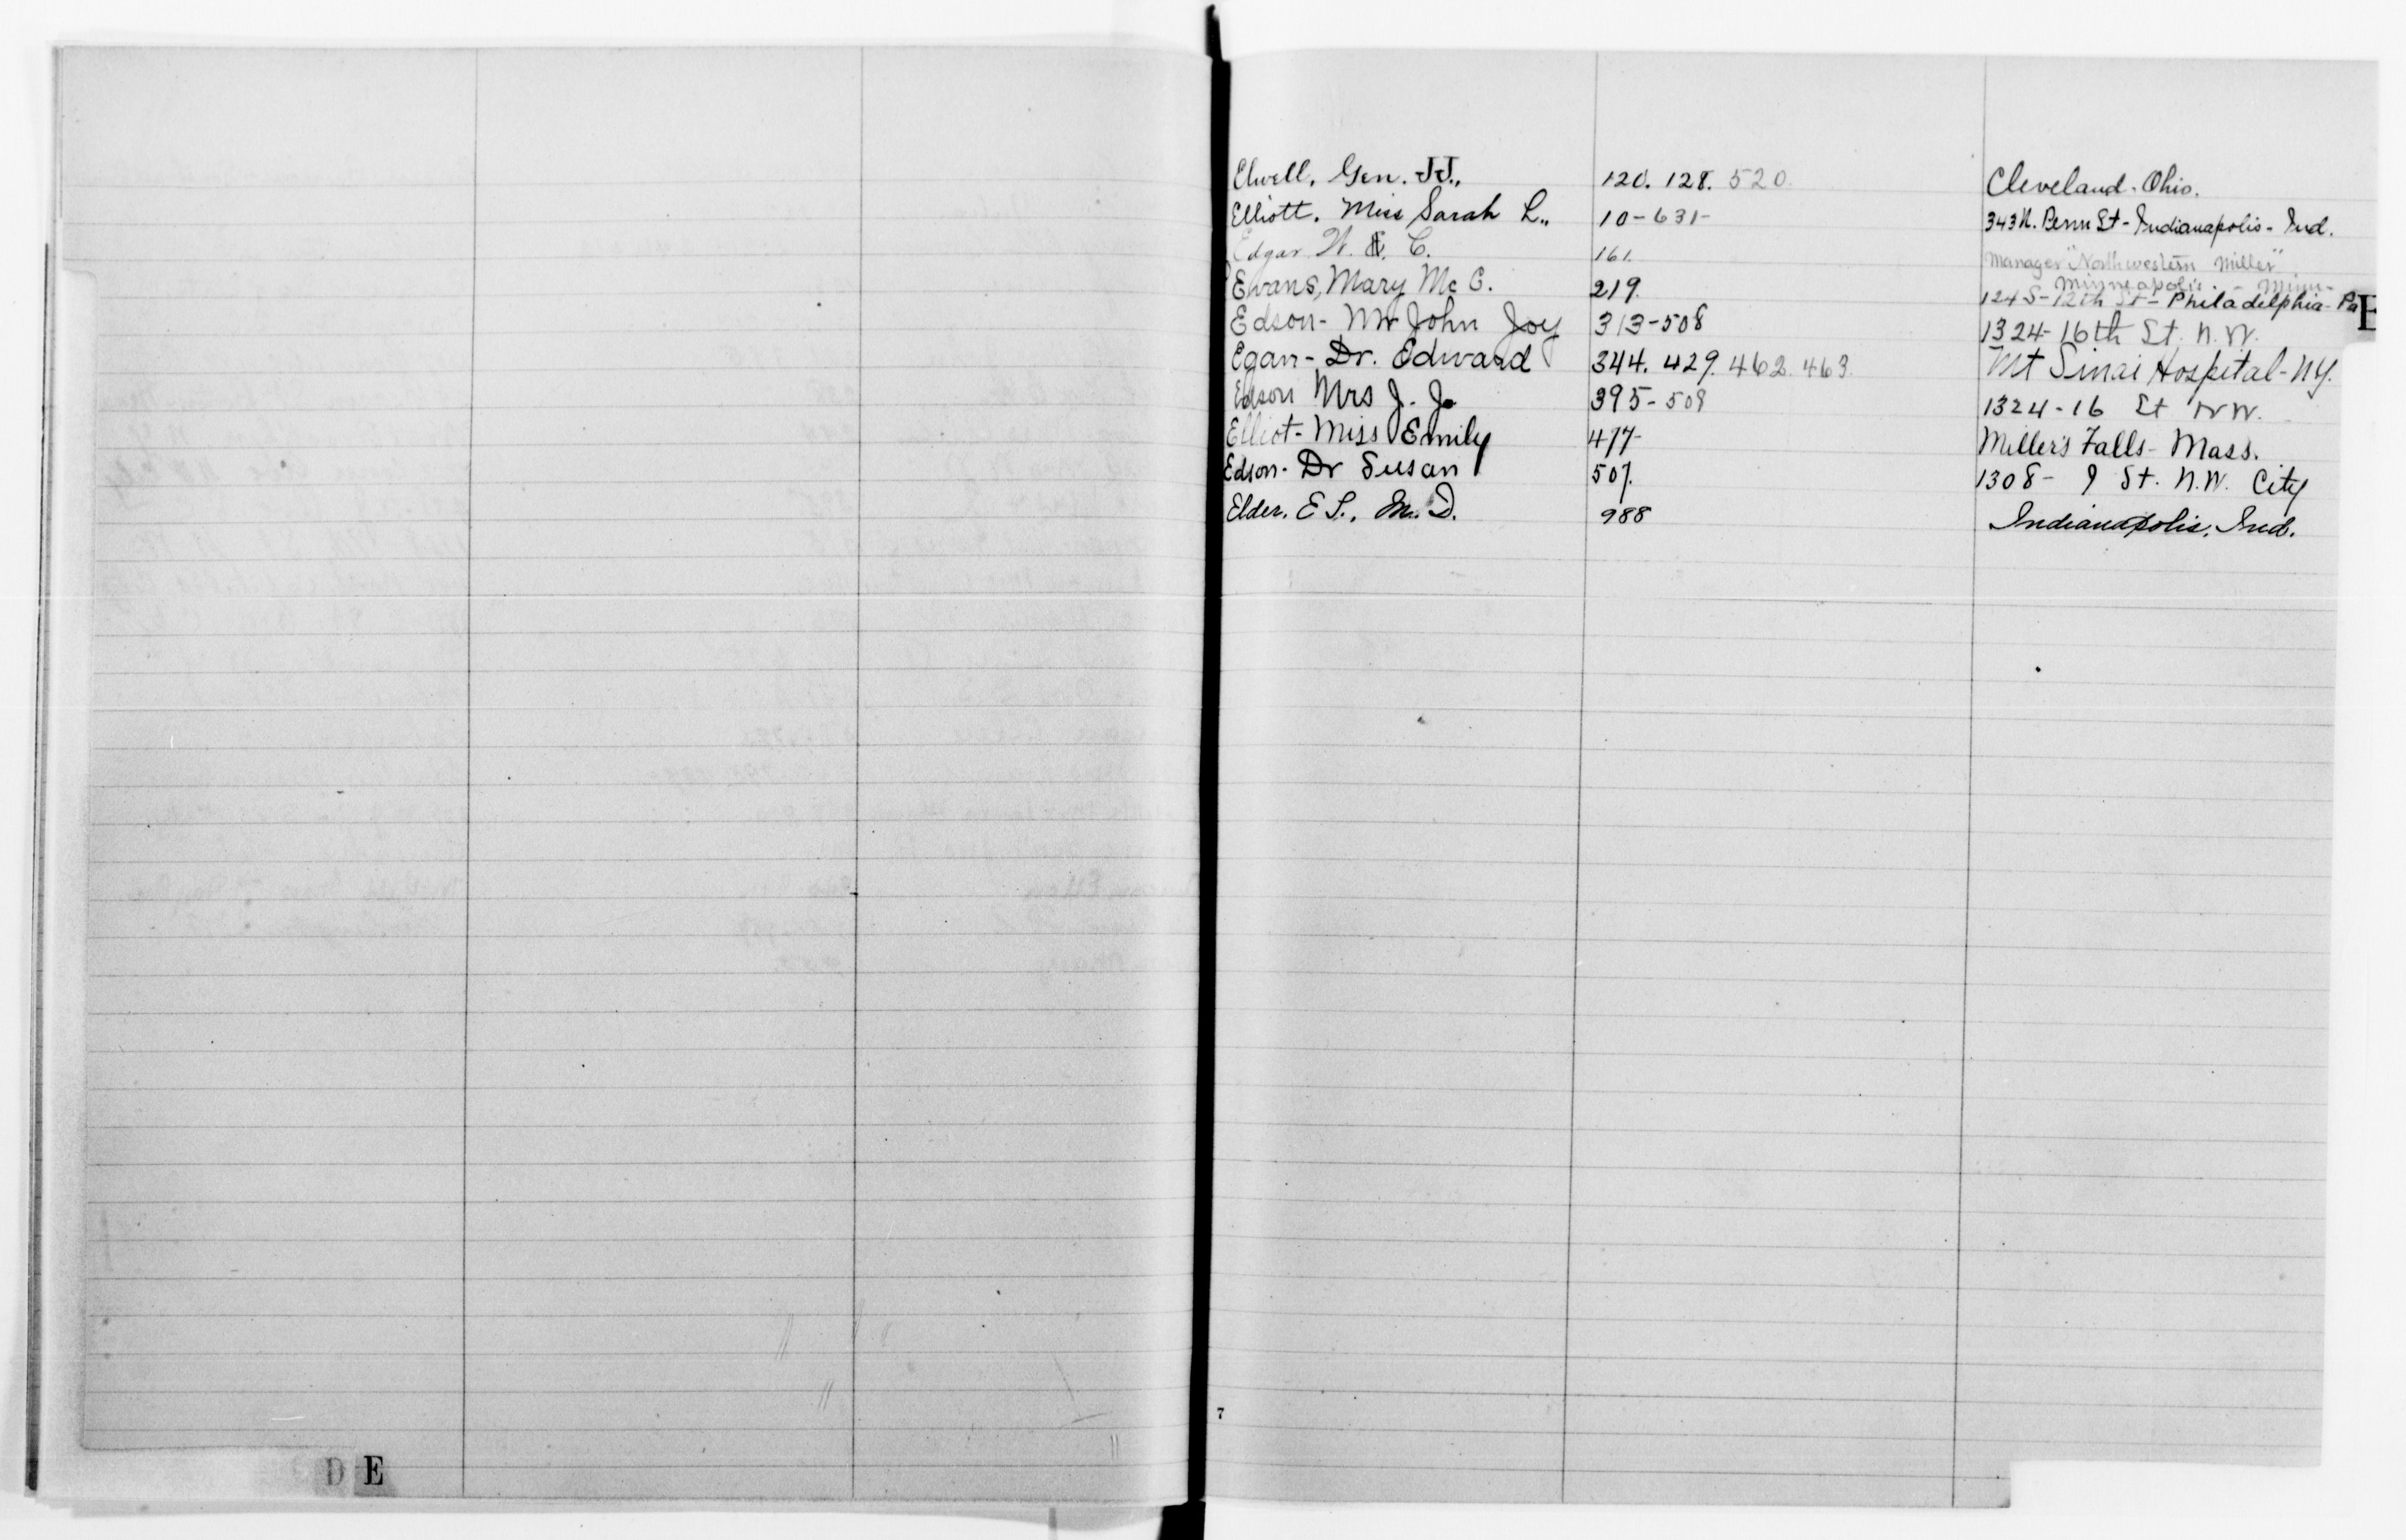 Elwell, Gen. J.J., 120. 128. 520. Cleveland. Ohio.
Elliott. Miss Sarah L., 10-631- 343 N. Penn St - Indianapolis - Ind.
Edgar W. C. 161. Manager "Northwestern Miller"
Minneapolis - Minn-
Evans, Mary Mc E. 219. 124 S- 12th St - Philadelphia - Pa
Edson- Mr John Joy 313-508 1324-16th St. N.W.
Egan- Dr. Edward 344. 429. 462. 463. Mt Sinai Hospital-N.Y.
Edson Mrs J. J. 395-509 1324-16 St NW.
Elliot- Miss Emily 477- Miller's Falls- Mass.
Edson- Dr Susan 507. 1308- I St. N.W. City
Elder. E S., M. D. 988 Indianapolis, Ind.
E
7
D E